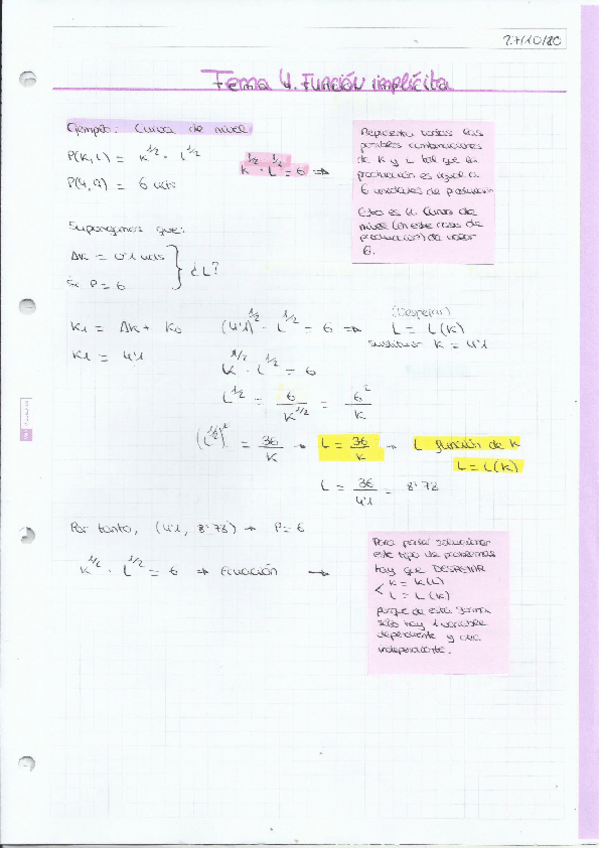 27/10/20
Tema 4. Función implícita
Ejemplo: Curva de nivel
P(K,L) = K^1/2 · L^1/2
P(4,9) = 6 uds
K^1/2 · L^1/2 = 6 →
Representa todas las
posibles combinaciones
de K y L tal que la
producción es igual a
6 unidades de producción
Esto es la curva de
nivel (en este caso de
producción) de valor
6.
Supongamos que:
ΔK = 0'1 uds
Si P = 6
¿L?
K1 = ΔK + K0
K1 = 4'1
(4'1)^1/2 · L^1/2 = 6 →
(Despejar)
L = L(K)
sustituir K = 4'1
K^1/2 · L^1/2 = 6
L^1/2 = 6/K^1/2 = 6^2/K
(L^1/2)^2 = 36/K → L = 36/K → L función de K
L = L(K)
L = 36/4'1 = 8'78
Por tanto, (4'1, 8'78) → P = 6
K^1/2 · L^1/2 = 6 → Ecuación →
Para poder solucionar
este tipo de problemas
hay que DESPEJAR
< K = K(L)
L = L(K)
porque de esta forma
sólo hay 1 variable
dependiente y otra
independiente.